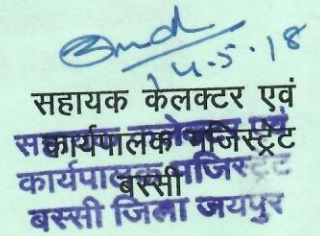 14.5.18
सहायक कलक्टर एवं
कार्यपालक मजिस्ट्रेट
बस्सी
सहायक कलेक्टर एवं
कार्यपालक मजिस्ट्रेट
बस्सी जिला जयपुर